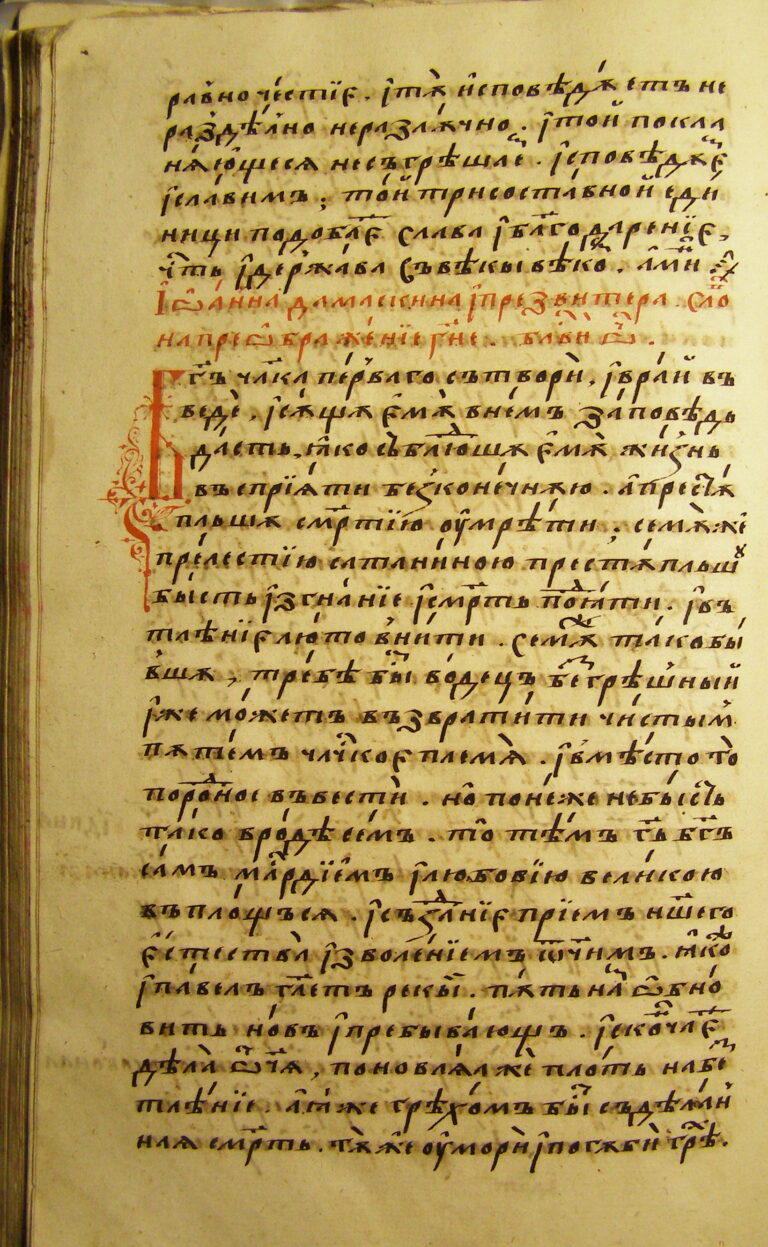 равночестїе. і҆ тꙗ̀ и҆сповѣдꙋетъ не
раздѣлно неразлꙋчно. і҆ той покла
нѧющесѧ несъгрѣшае҃. і҆сповѣдꙋе҃
і҆ славимъ; той трисоставной еди
ници подобае҃ слава і҆ бл҃годаренїе,
чт҃ь і҆ держава съ вѣкы вѣкѡ҃. а҆ми҃н
Іѡ҆анна дамаскина і҆ презвитера. сло҃
на преѡбраженїе гн҃е. бл҃ви ѿ.
Гь҃ чл҃ка первaго сътвори, і҆ в рай въ
веде, і҆ сѧщꙋ е҆мꙋ̀ в немъ заповѣдь
дасть, ꙗ҆ко съблюдшꙋ е҆мꙋ̀ жиꙁнь
въспрїѧти беꙁконечнꙋю. а҆ престꙋ
плъшꙋ смр҃тїю оу҆мрѣти; семꙋ же
прелестїю сатанинною престꙋплъшꙋ
бысть і҆згнанїе і҆ смр҃ть поꙗти. і҆ въ
тлѣнїе люто внити. семꙋ҃ тако бы
вшꙋ, требѣ бы҃ водецъ бе҃грѣшный
і҆же можетъ възвратити чистым
пꙋтемъ чл҃чкое племѧ. і҆ в мѣсто то
породное въвести. но понеже не бысть
тако вродѣ семъ. то тѣмъ гь҃ бг҃ъ
самъ мл҃рдїемъ і҆ любовїю великою
въплощьсѧ. і҆ съꙁданїе прїемъ нш҃его
е҆стества і҆зволенїемъ ѿч҃имъ. ꙗ҆ко
і҆ павелъ гл҃етъ рекы҃. пꙋть на҃ ѡ҆бно
вить новъ і҆ пребывающъ. і҆ско҃чае҃
дѣла ѿч҃ꙗ, поновлѧꙗ же плоть на бе҃
тлѣнїе. а҆ ꙗже грѣхомъ бы҃ съдѣлан
наꙗ смр҃ть. тꙋ же оу҆мори і҆ погꙋби грѣ҃.